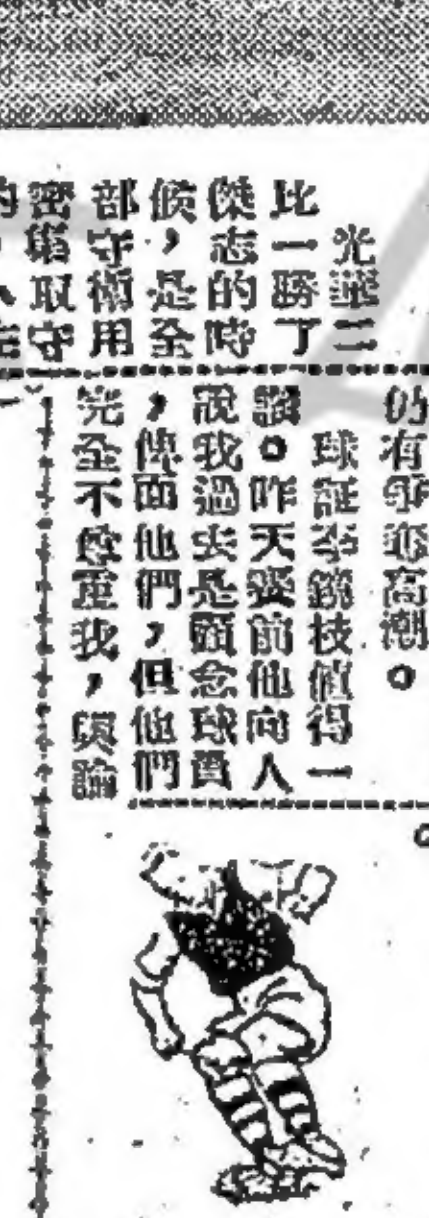 光華二
比一勝了
傑志的時
候，是全
部守衛用
密集取守
仍有爭奪高潮。
球証李鏡枝值得一
讚。昨天賽前他向人
說我過去是顧念球員
，俾面他們，但他們
完全不尊重我，輿論